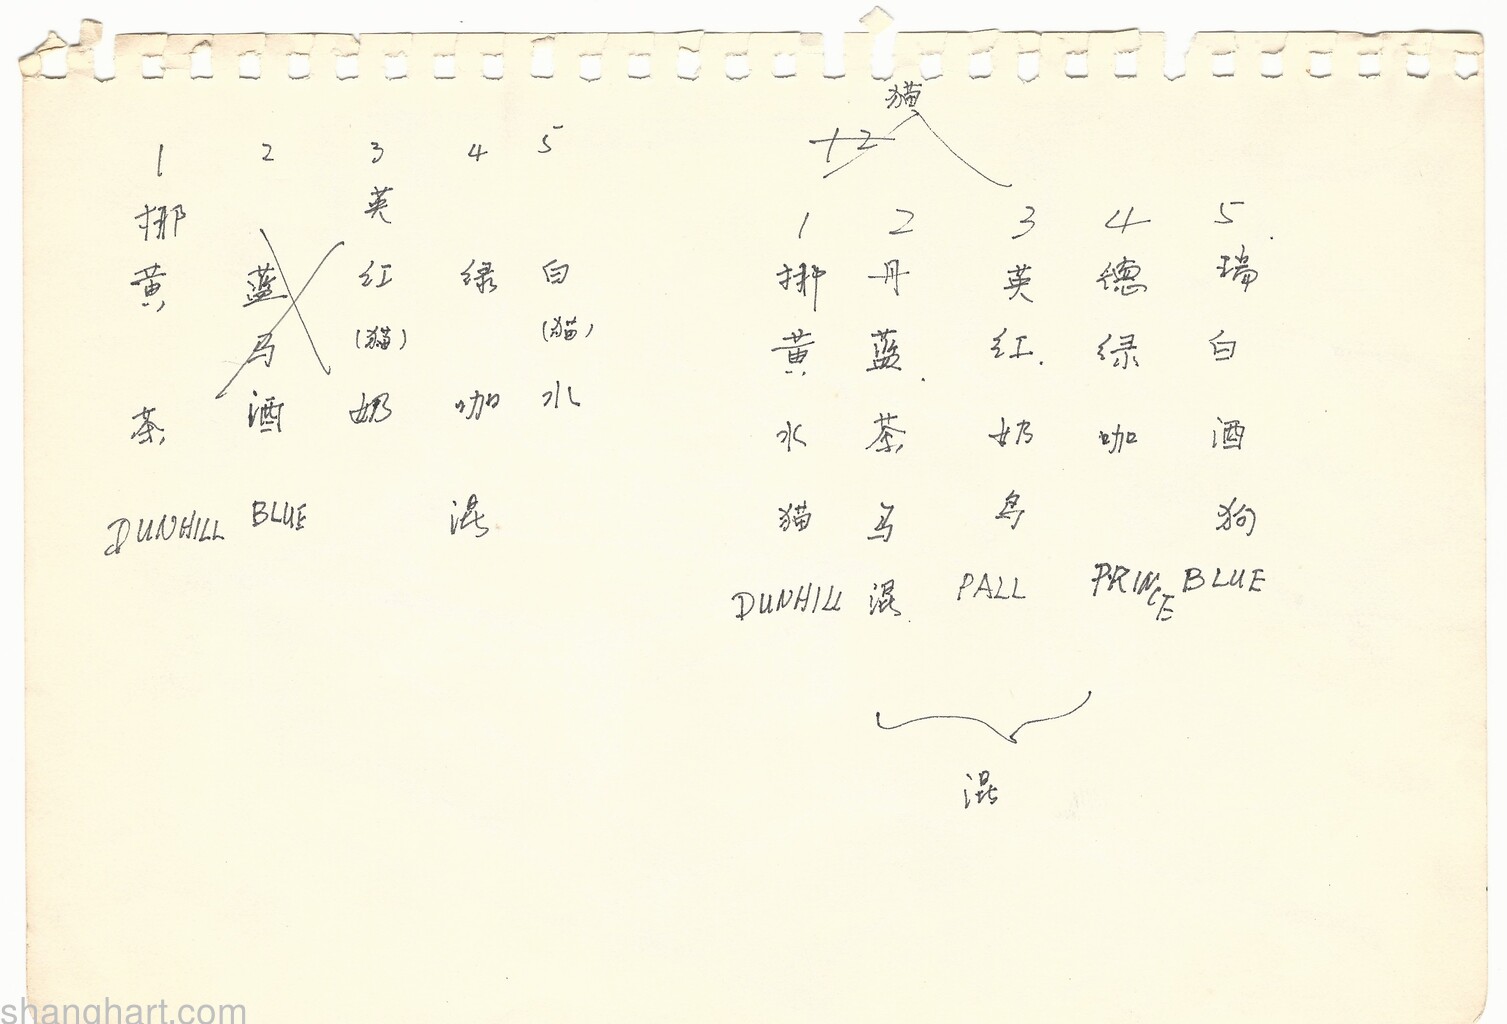 1 2 3 4 5
挪 英
黄 蓝 红 绿 白
马 (猫) (猫)
茶 酒 奶 咖 水
DUNHILL BLUE 混
猫
1 2
1 2 3 4 5
挪 丹 英 德 瑞
黄 蓝 红 绿 白
水 茶 奶 咖 酒
猫 马 鸟 狗
DUNHILL 混 PALL PRINCE BLUE
混
shanghart.com